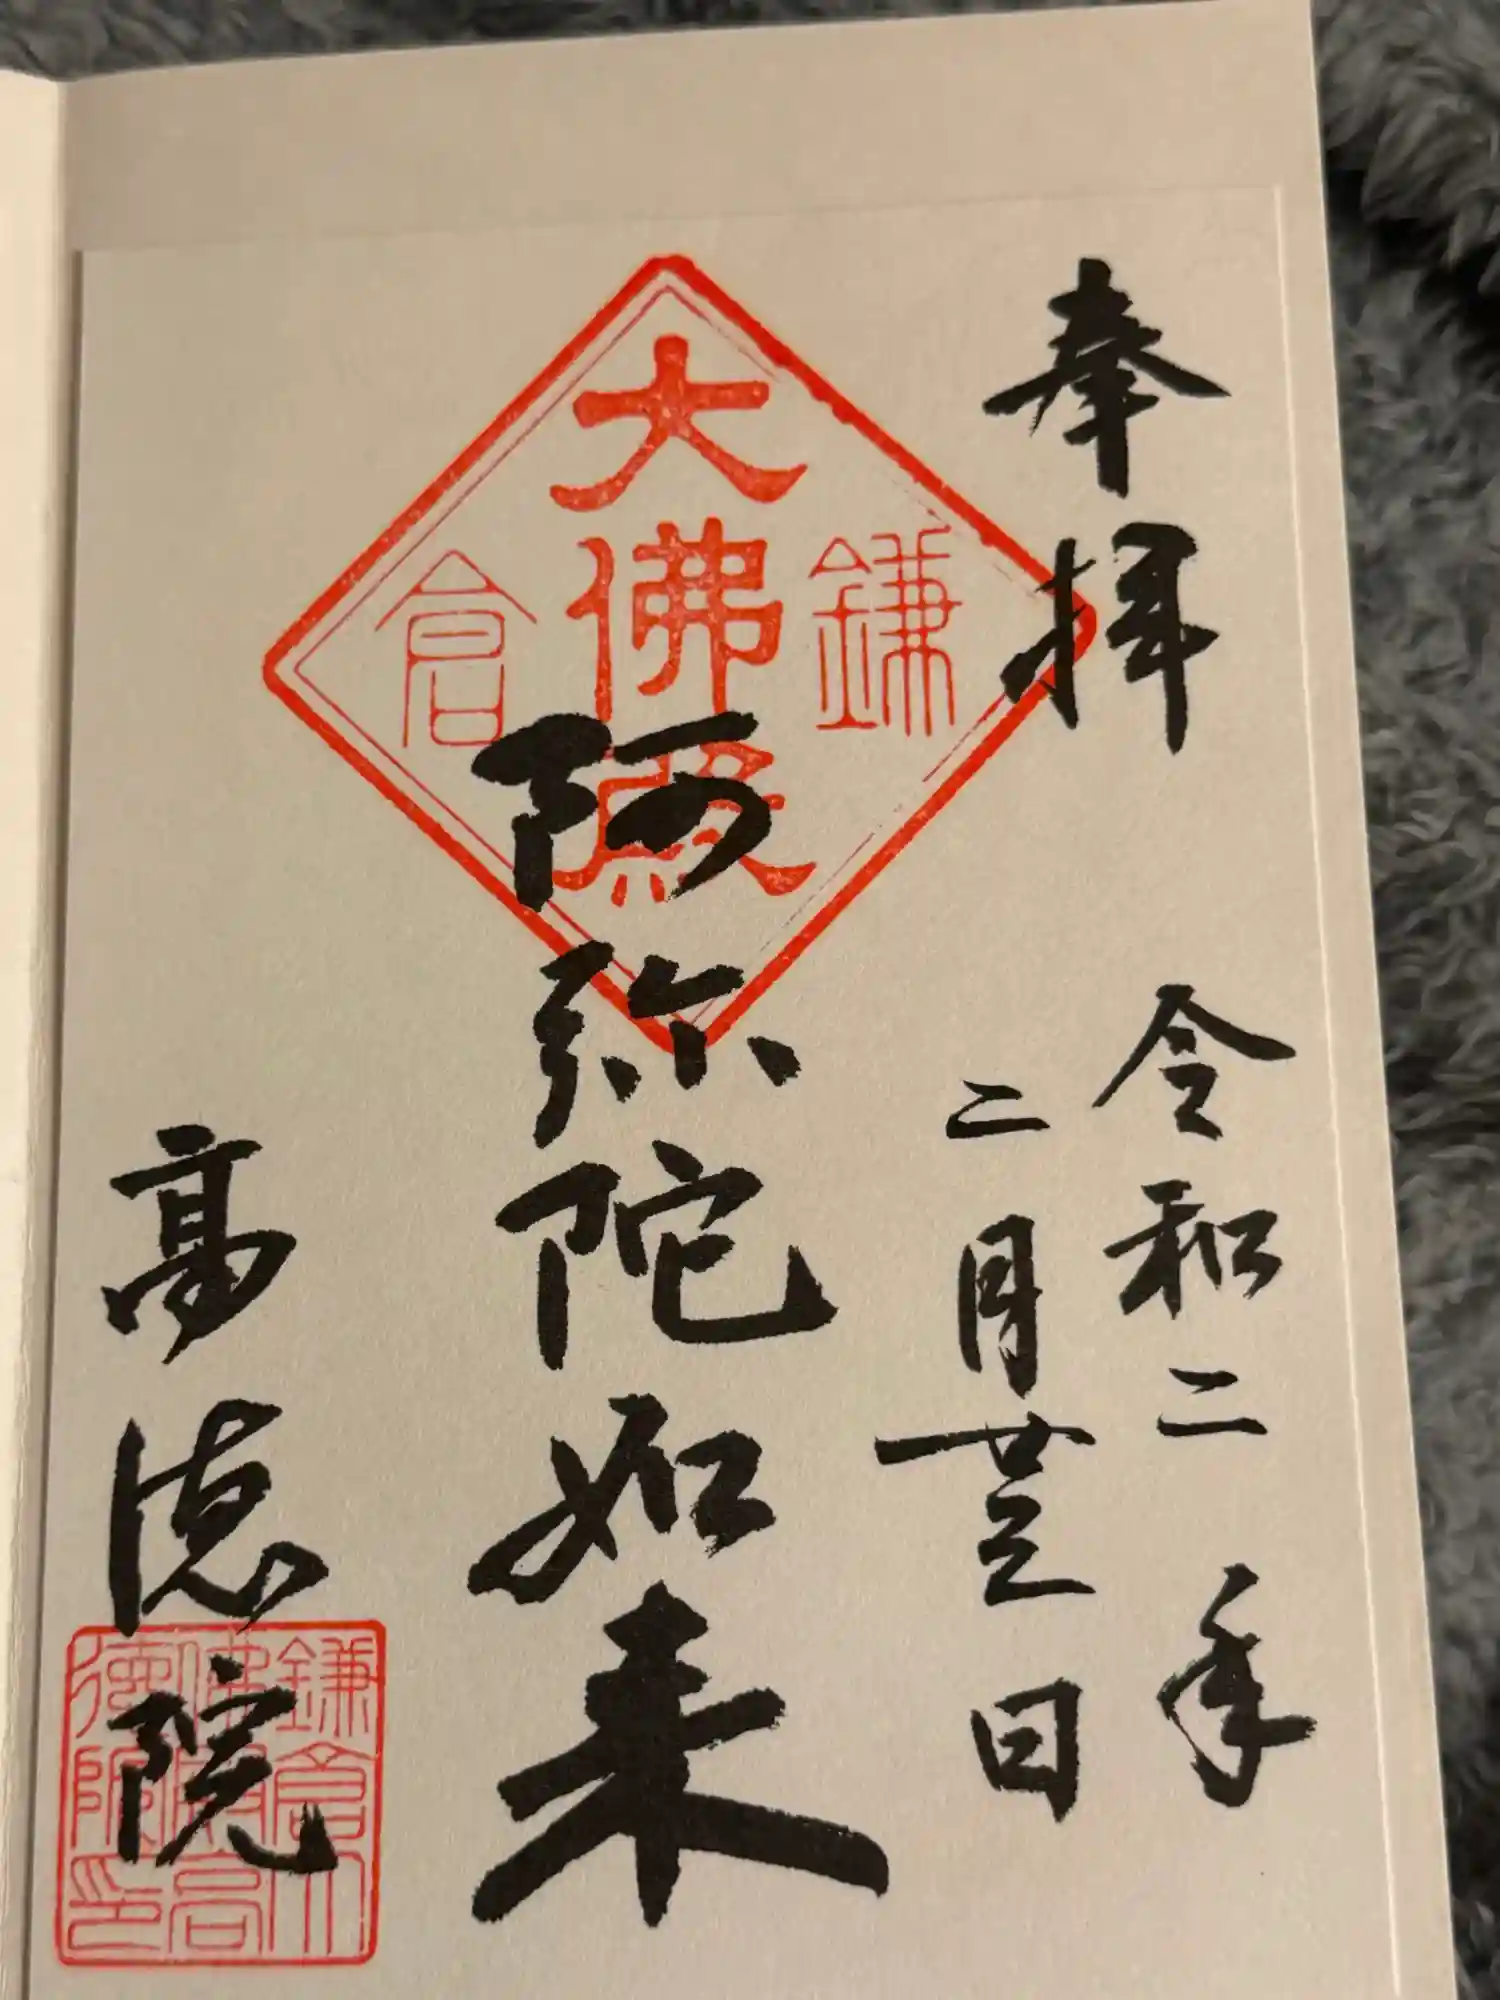 奉拝
令和二年
二月廿三日
鎌
大佛殿
倉
阿弥陀如来
高徳院
鎌倉大
佛殿高
徳院印